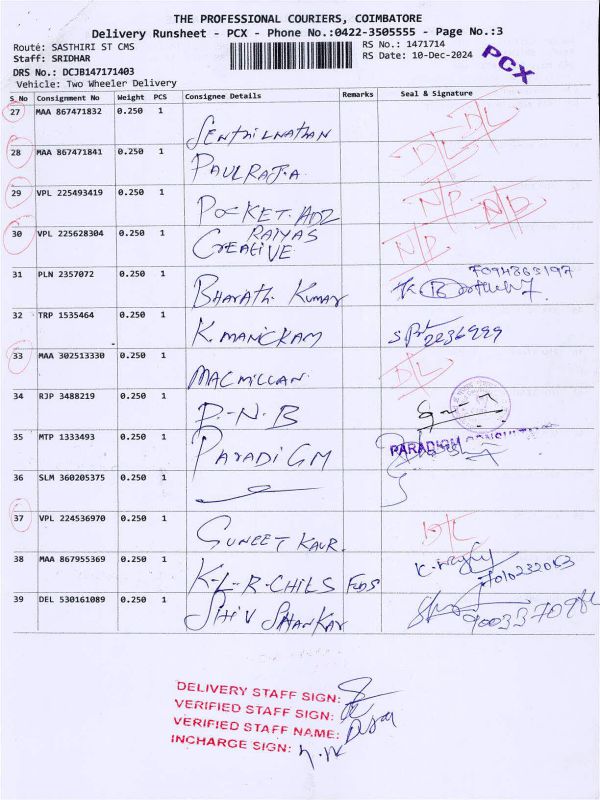 THE PROFESSIONAL COURIERS, COIMBATORE
Delivery Runsheet - PCX - Phone No.:0422-3505555 - Page No.:3
Routé: SASTHIRI ST CMS RS No.: 1471714
Staff: SRIDHAR RS Date: 10-Dec-2024
PCX
DRS No.: DCJB147171403
Vehicle: Two Wheeler Delivery
S.No Consignment No Weight PCS Consignee Details Remarks Seal & Signature
27 MAA 867471832 0.250 1 Senthilnathan D/L
28 MAA 867471841 0.250 1 PAULRAJ.A D/L
29 VPL 225493419 0.250 1 POCKET. ADZ N/D N/D
30 VPL 225628304 0.250 1 RAIYAS CREATIVE N/D
31 PLN 2357072 0.250 1 Bharath Kumar
32 TRP 1535464 0.250 1 K. MANICKAM 2236999
33 MAA 302513330 0.250 1 MACMILLAN D/L
34 RJP 3488219 0.250 1 P-N-B
35 MTP 1333493 0.250 1 PARADIGM PARADIGM CONSULTING
36 SLM 360205375 0.250 1
37 VPL 224536970 0.250 1 SUNEET KAUR. D/L
38 MAA 867955369 0.250 1 K-L-R-CHILS FUDS 7010232063
39 DEL 530161089 0.250 1 SHIV SHANKAR
DELIVERY STAFF SIGN:
VERIFIED STAFF SIGN:
VERIFIED STAFF NAME:
INCHARGE SIGN: